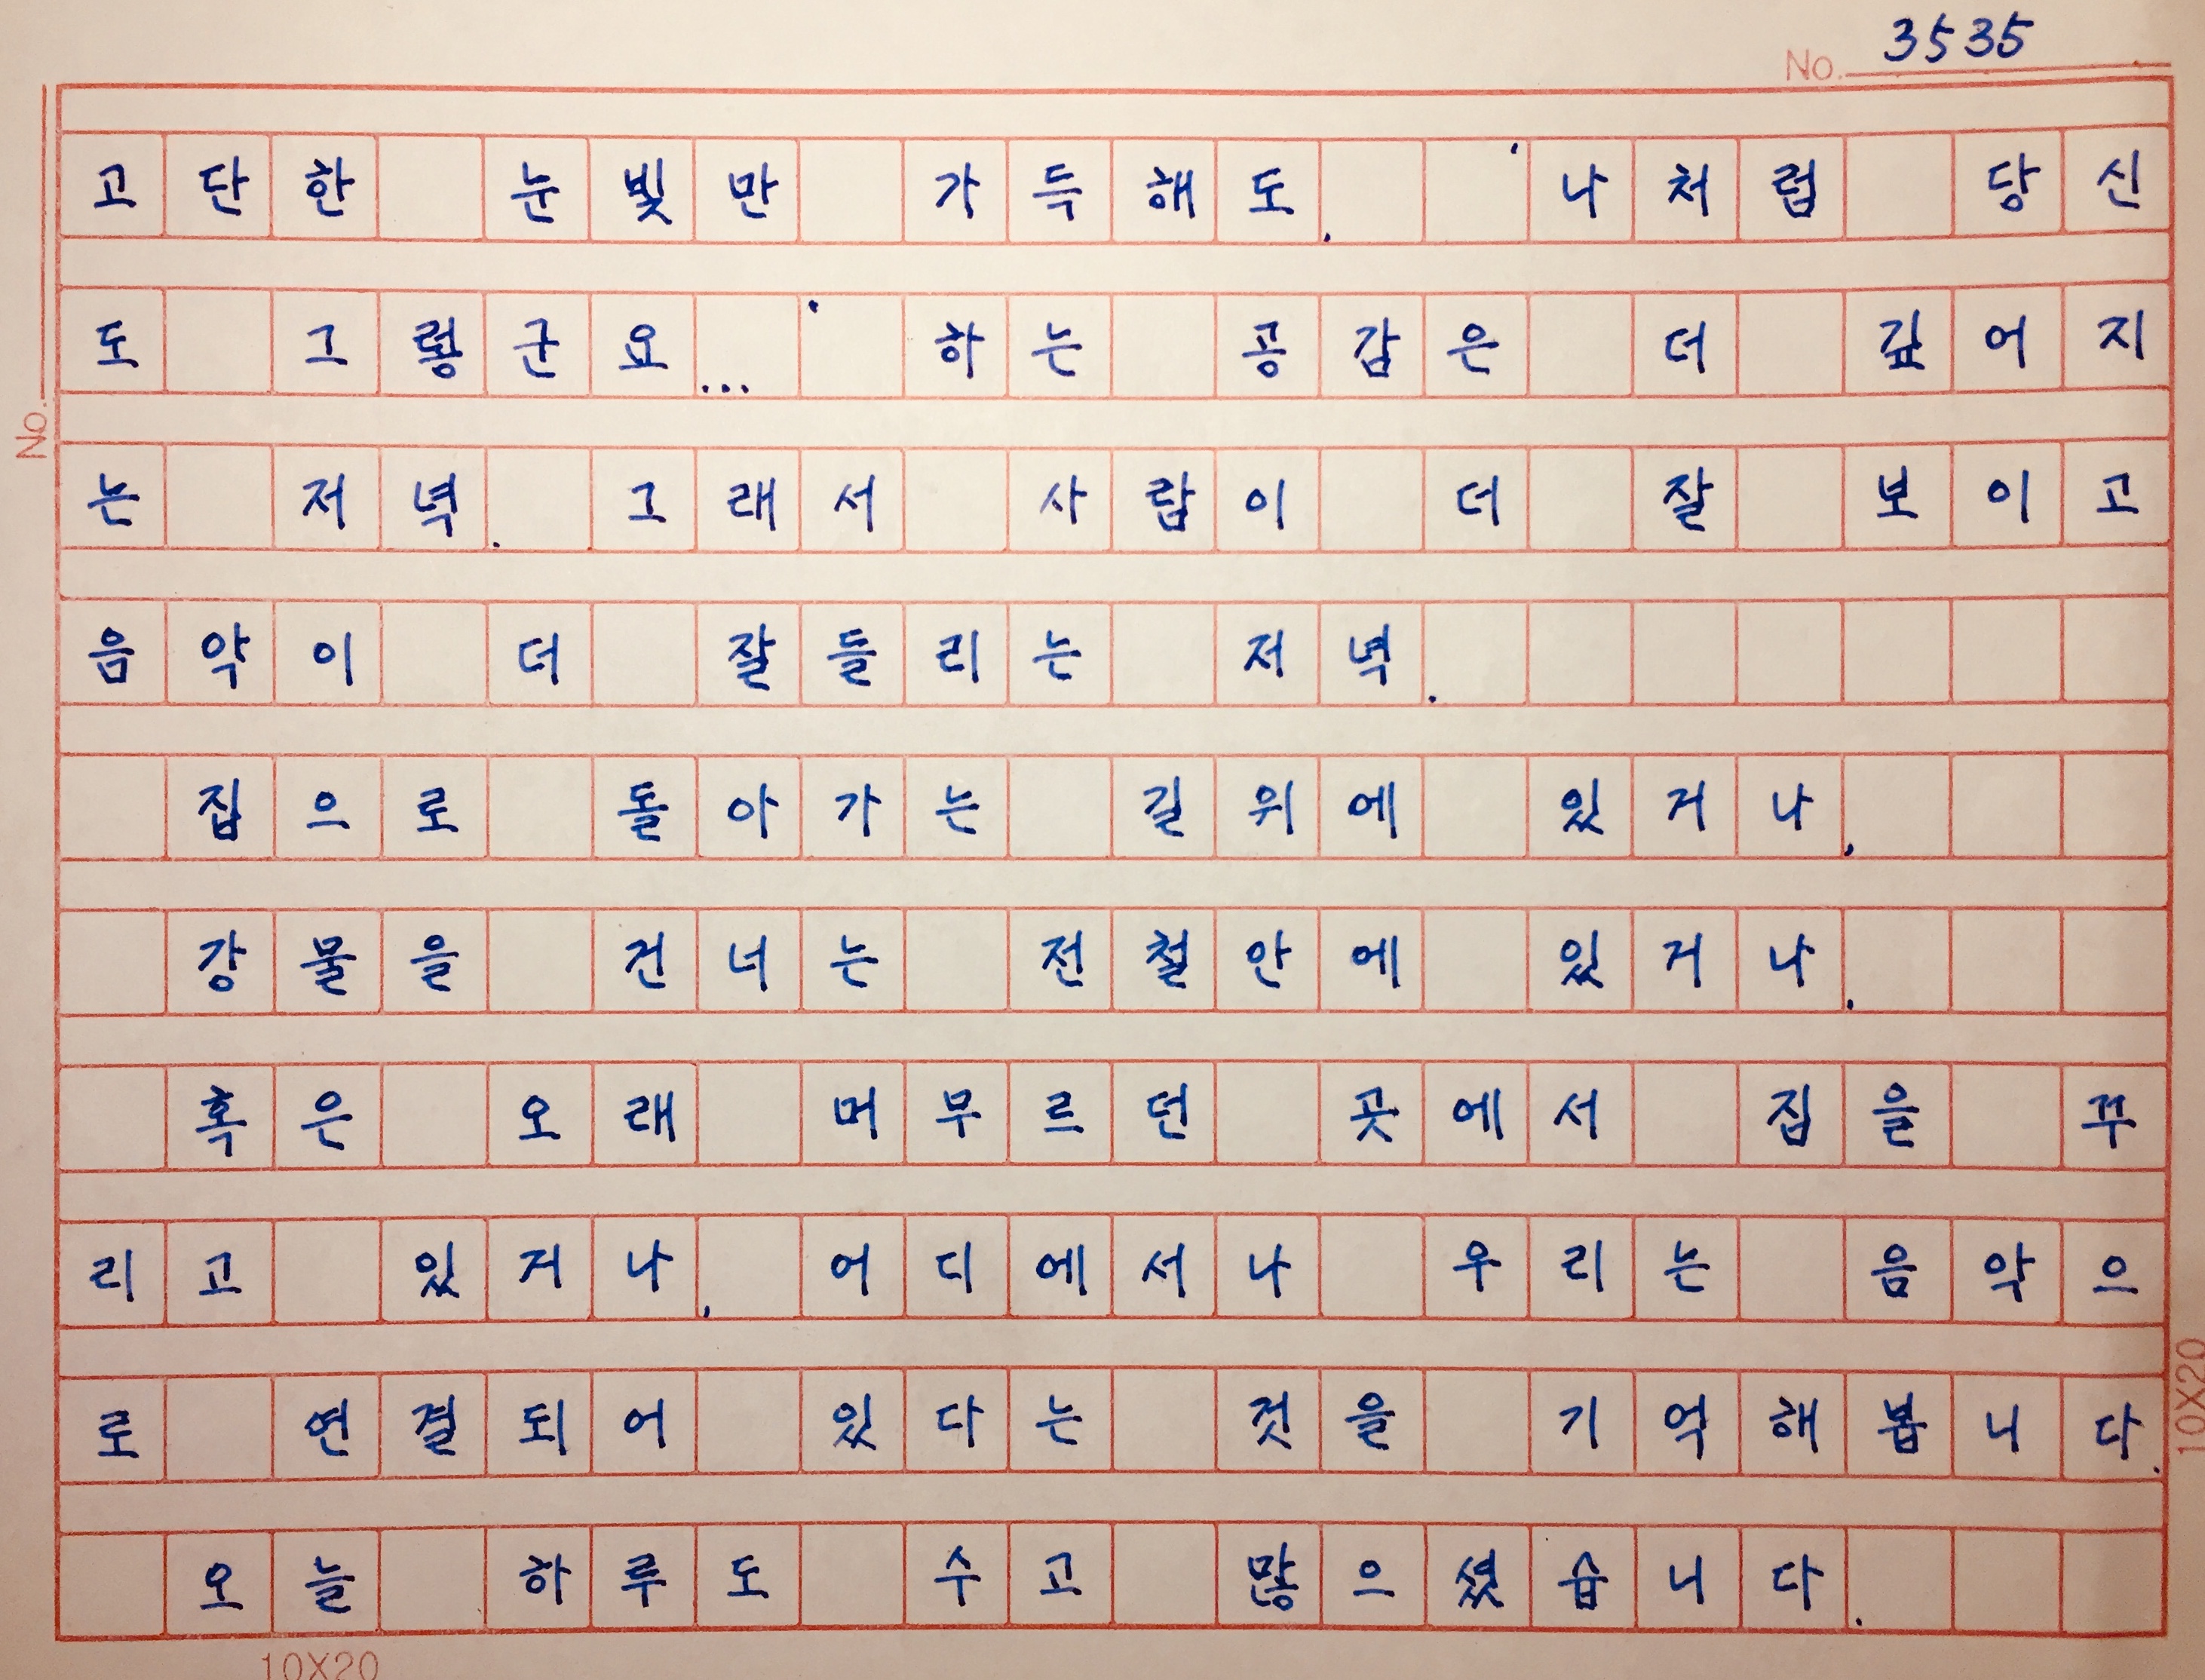 No. 3535
고단한 눈빛만 가득해도. '나처럼 당신
도 그렇군요...' 하는 공감은 더 깊어지
는 저녁. 그래서 사람이 더 잘 보이고
음악이 더 잘들리는 저녁.
집으로 돌아가는 길위에 있거나,
강물을 건너는 전철안에 있거나,
혹은 오래 머무르던 곳에서 짐을 꾸
리고 있거나, 어디에서나 우리는 음악으
로 연결되어 있다는 것을 기억해봅니다.
오늘 하루도 수고 많으셨습니다.
No.
10X20
10X20